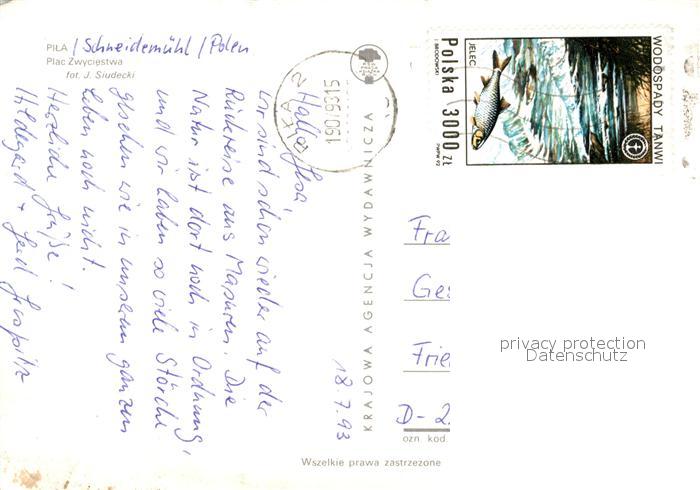 PIŁA / Schneidemühl / Polen
Plac Zwycięstwa
fot. J. Siudecki
18.7.93
Hallo
wir sind schon wieder auf der
Rückreise aus Masuren. Die
Natur ist dort noch in Ordnung,
und wir haben so viele Störche
gesehen wie in unserem ganzen
Leben noch nicht.
Herzliche Grüße!
Hildegard +
KRAJOWA AGENCJA WYDAWNICZA
Wszelkie prawa zastrzeżone
WODOSPADY TANWI
JELEC
Polska 3000 zł
PWPW 92
Fra
Ges
Frie
D-2
ozn. kod.
privacy protection
Datenschutz